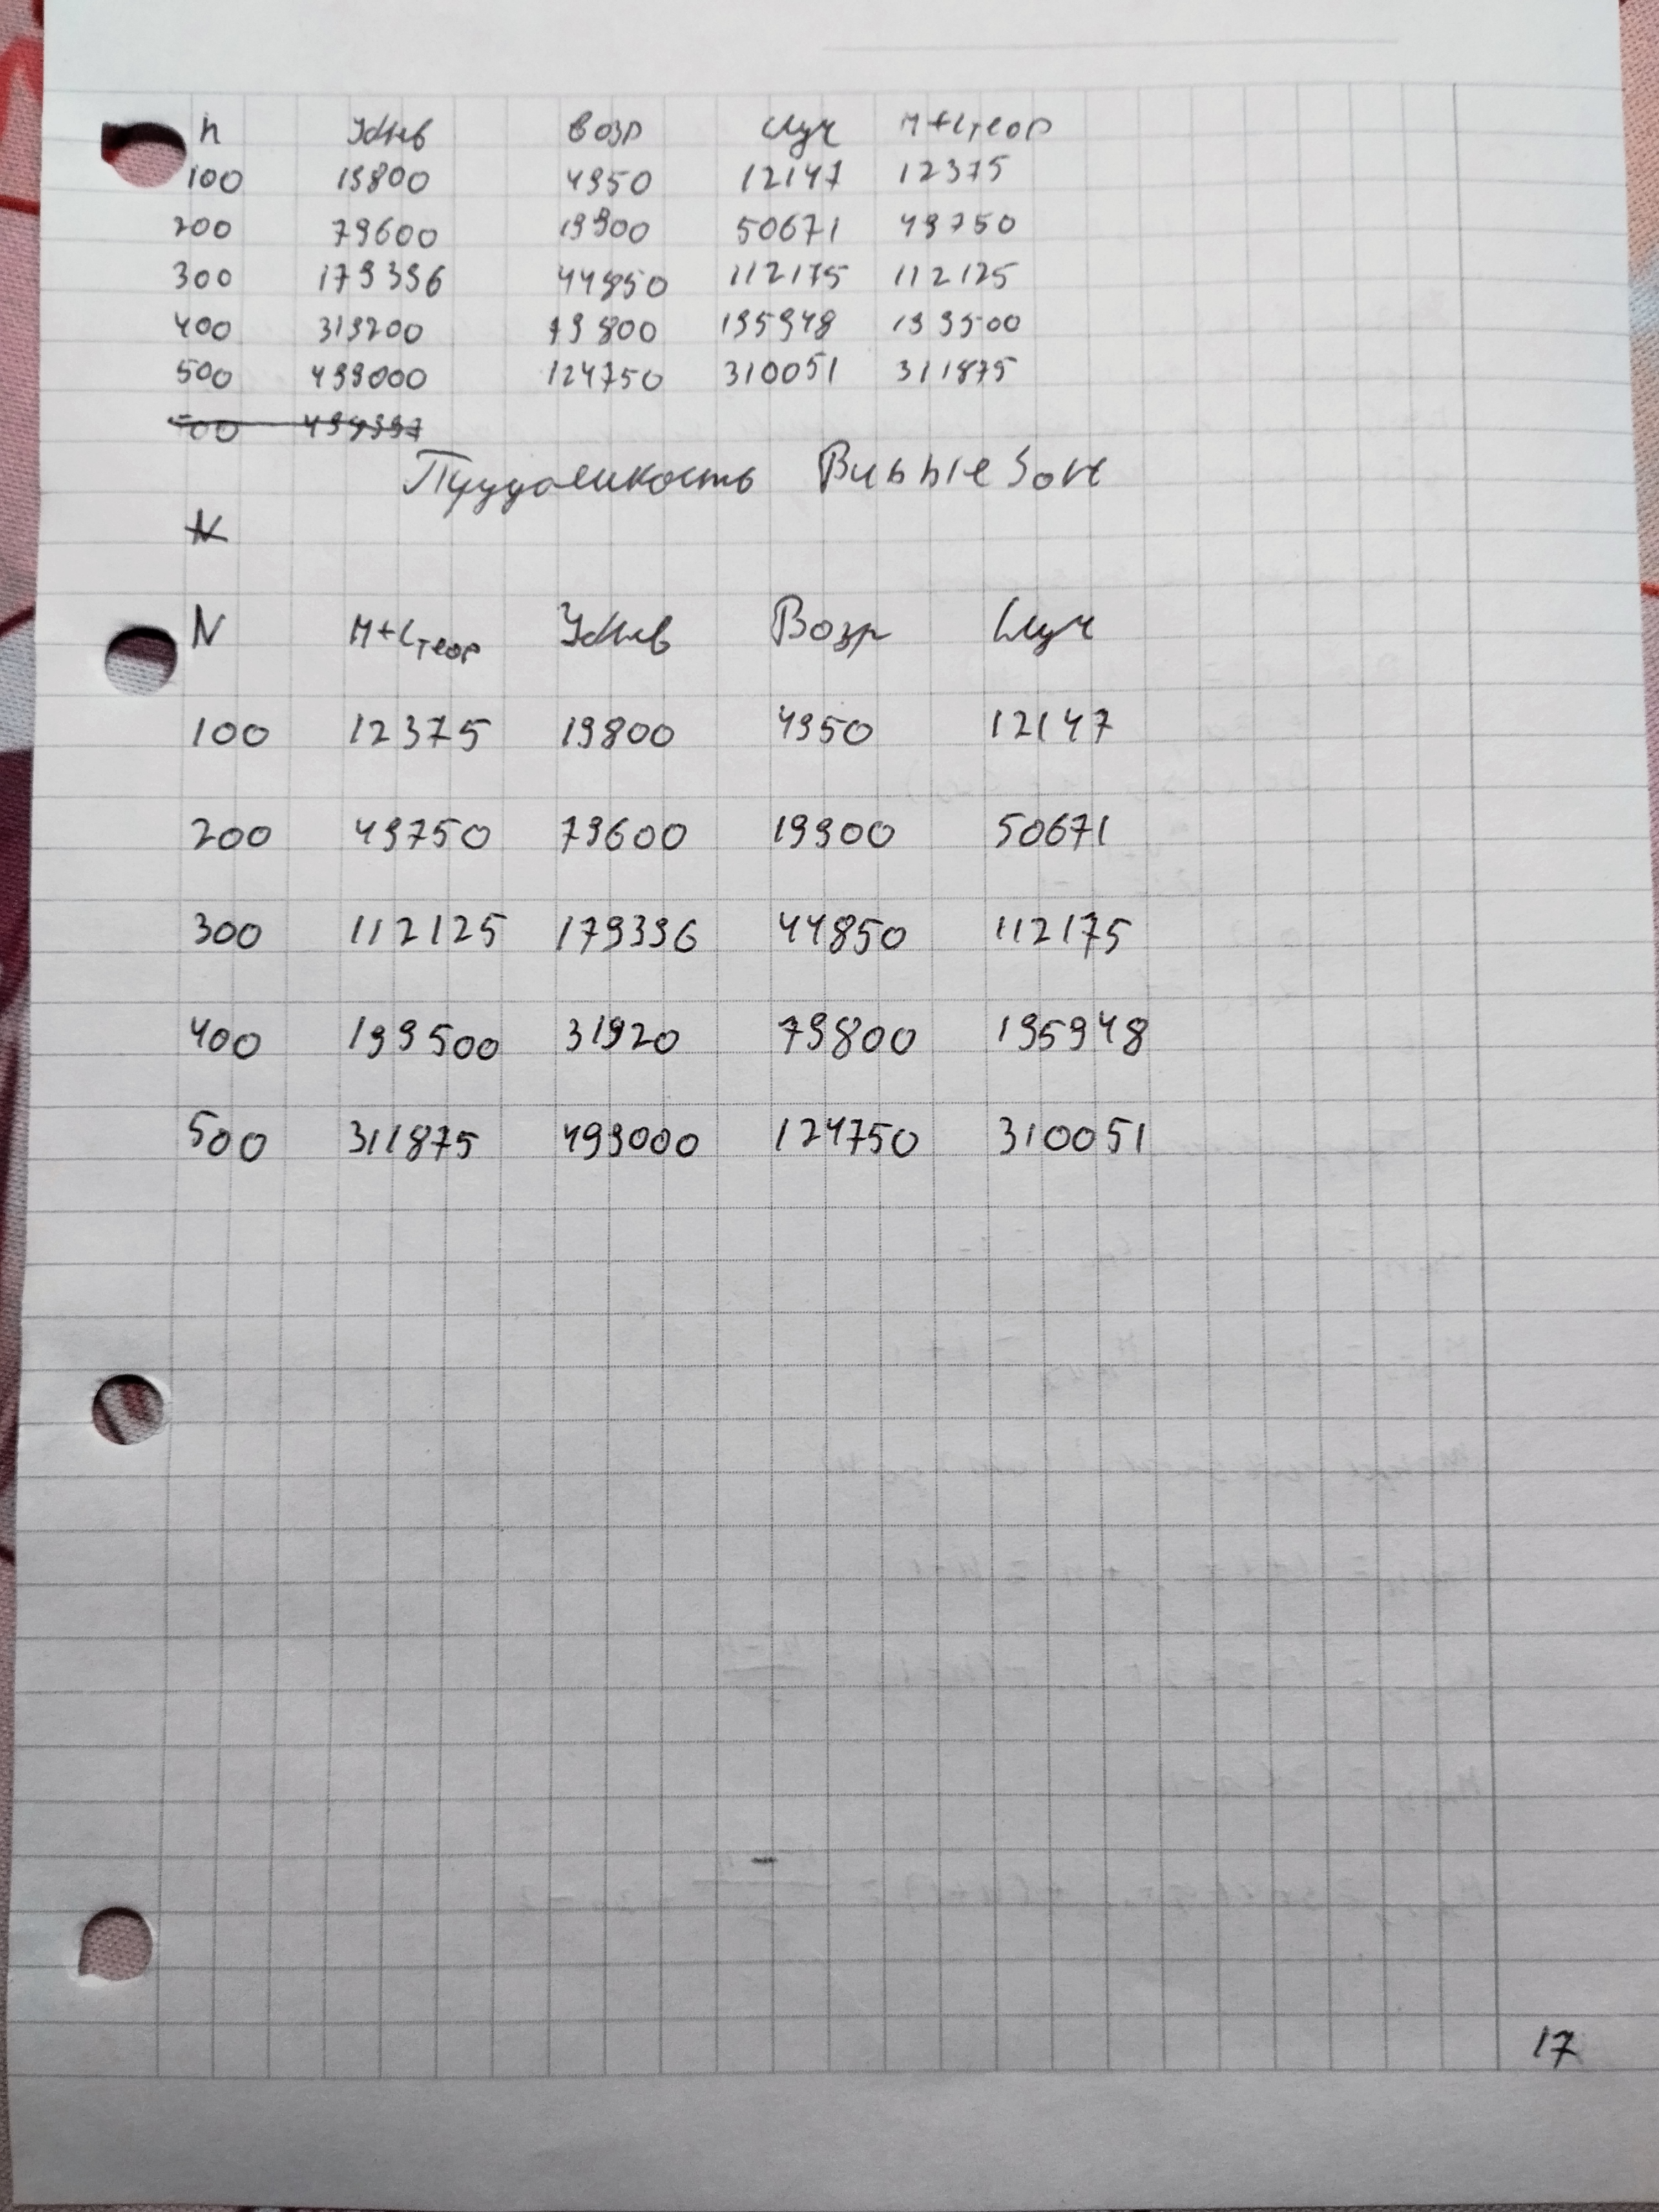 n Убыв Возр Случ M+Cтеор
100 19800 4950 12147 12375
200 79600 19900 50671 49750
300 179396 44850 112175 112125
400 319200 79800 195948 199500
500 499000 124750 310051 311875
Трудоемкость BubbleSort
N
N M+Cтеор Убыв Возр Случ
100 12375 19800 4950 12147
200 49750 79600 19900 50671
300 112125 179396 44850 112175
400 199500 31920 79800 195948
500 311875 499000 124750 310051
17